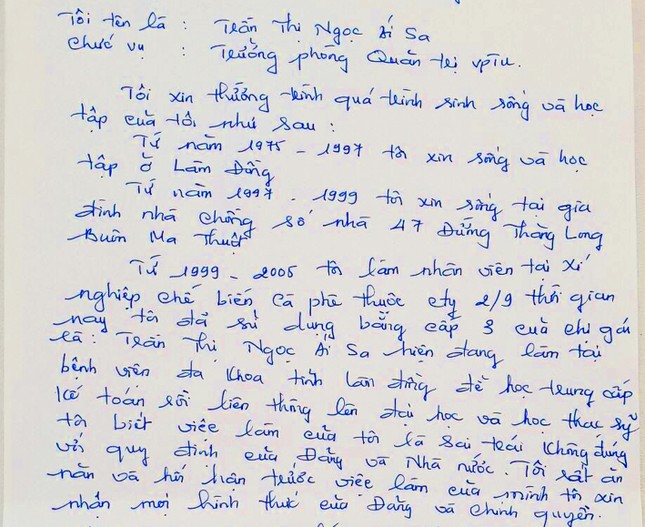 Tôi tên là : Trần Thị Ngọc Ái Sa
Chức vụ : Trưởng phòng Quản trị VPTU.
Tôi xin tường trình quá trình sinh sống và học
tập của tôi như sau :
Từ năm 1975 - 1997 tôi xin sống và học
tập ở Lâm Đồng
Từ năm 1997 - 1999 tôi xin sống tại gia
đình nhà chồng số nhà 47 Đường Thăng Long
Buôn Ma Thuột
Từ 1999 - 2005 tôi làm nhân viên tại Xí
nghiệp chế biến Cà phê thuộc cty 2/9 thời gian
này tôi đã sử dụng bằng cấp 3 của chị gái
là : Trần Thị Ngọc Ái Sa hiện đang làm tại
bệnh viện đa khoa tỉnh Lâm Đồng để học trung cấp
kế toán rồi liên thông lên đại học và học thạc sỹ
tôi biết việc làm của tôi là sai trái không đúng
với quy định của Đảng và Nhà nước. Tôi rất ăn
năn và hối hận trước việc làm của mình tôi xin
nhận mọi hình thức của Đảng và chính quyền.